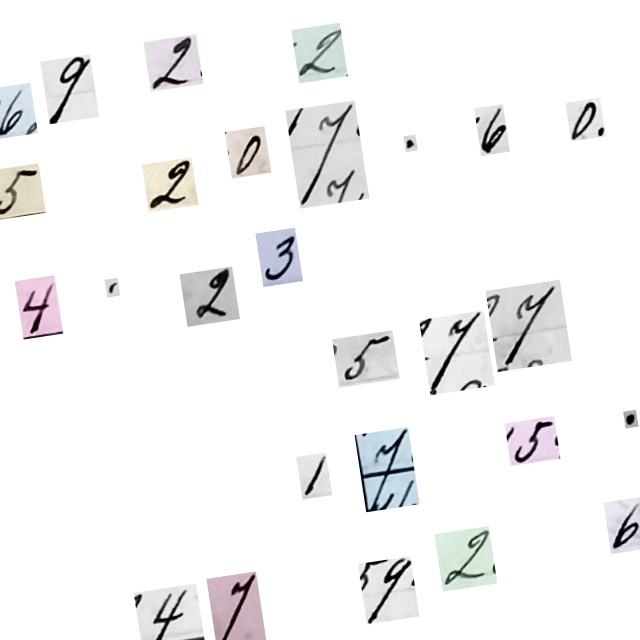 6922
5207.60
4,23
577
175.
47926